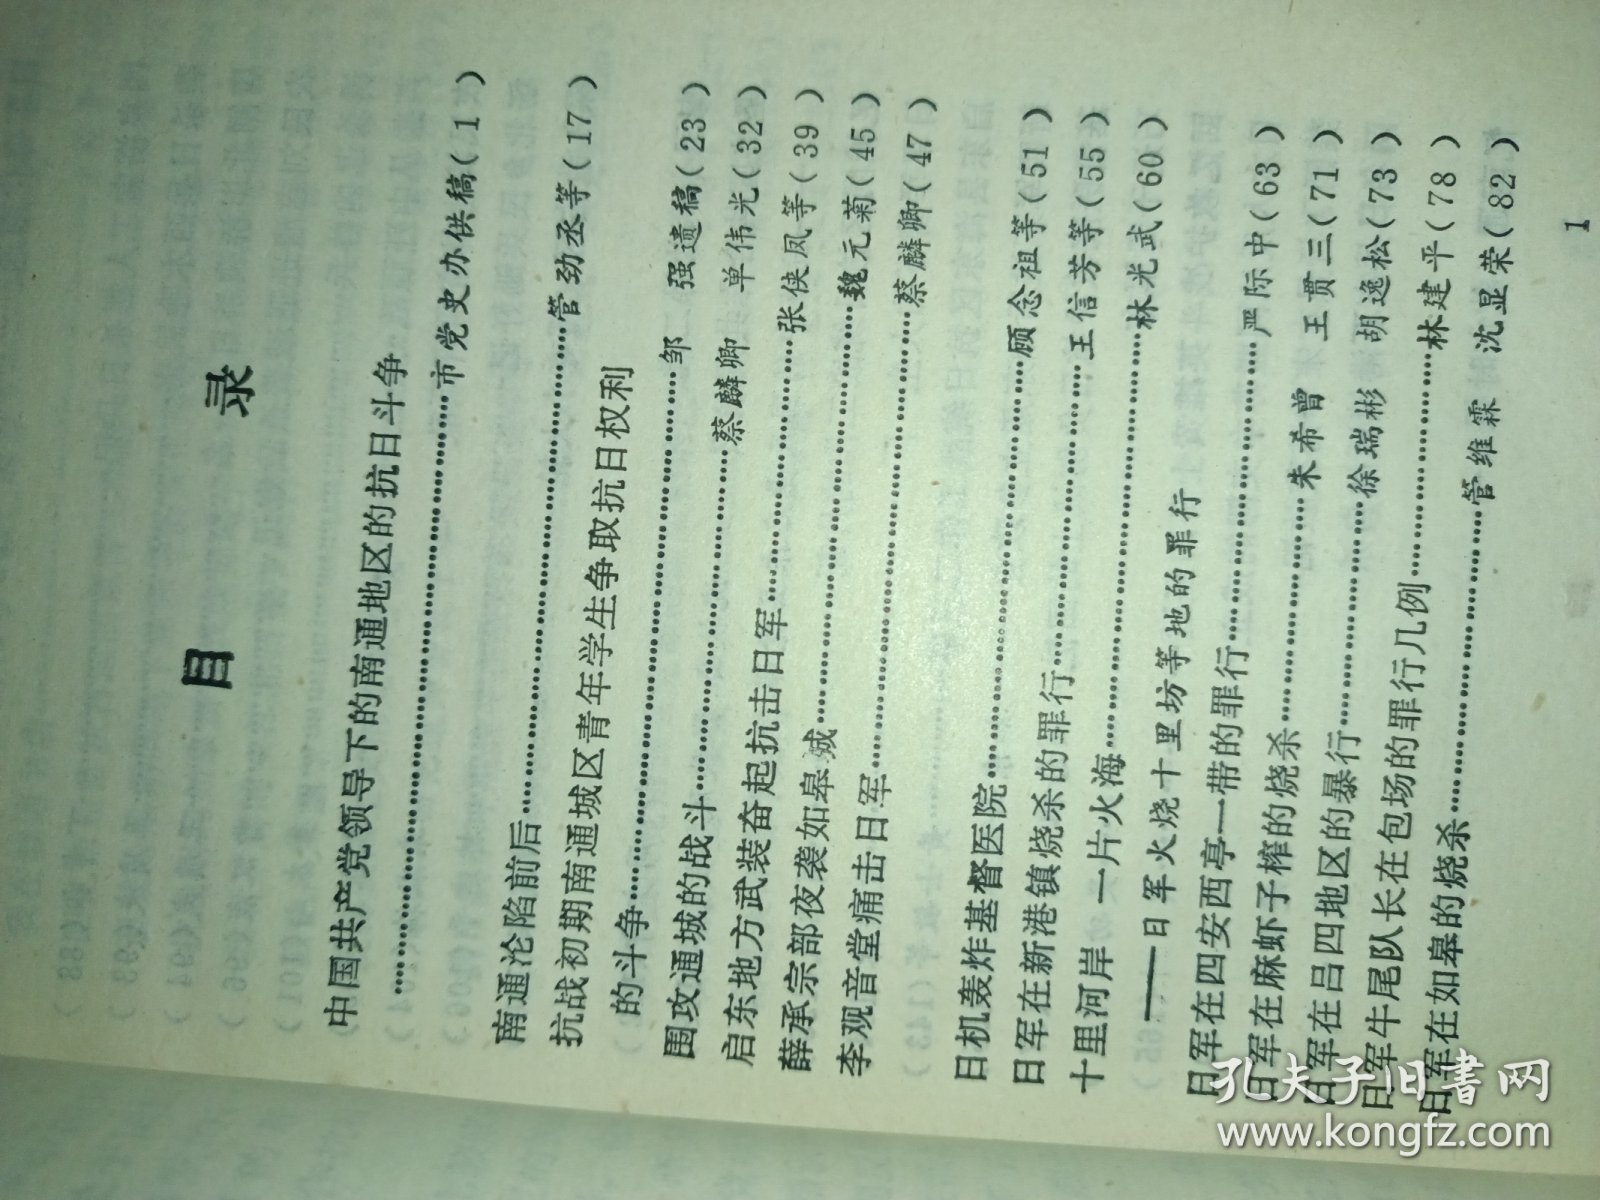 目 录
中国共产党领导下的南通地区的抗日斗争
……………………………………市党史办供稿(1)
南通沦陷前后……………………………管劲丞等(17)
抗战初期南通城区青年学生争取抗日权利
的斗争……………………………邹 强遗稿(23)
围攻通城的战斗……………………蔡麟卿 单伟光(32)
启东地方武装奋起抗击日军……………张侠凤等(39)
薛承宗部夜袭如皋城……………………魏元菊(45)
李观音堂痛击日军………………………蔡麟卿(47)
日机轰炸基督医院………………………顾念祖等(51)
日军在新港镇烧杀的罪行………………王信芳等(55)
十里河岸 一片火海……………………林光武(60)
——日军火烧十里坊等地的罪行
日军在四安西亭一带的罪行……………严际中(63)
日军在麻虾子榨的烧杀…………朱希曾 王贯三(71)
日军在吕四地区的暴行…………徐瑞彬 胡逸松(73)
日军牛尾队长在包场的罪行几例…………林建平(78)
日军在如皋的烧杀………………管维霖 沈显荣(82)
1
孔夫子旧书网
www.kongfz.com